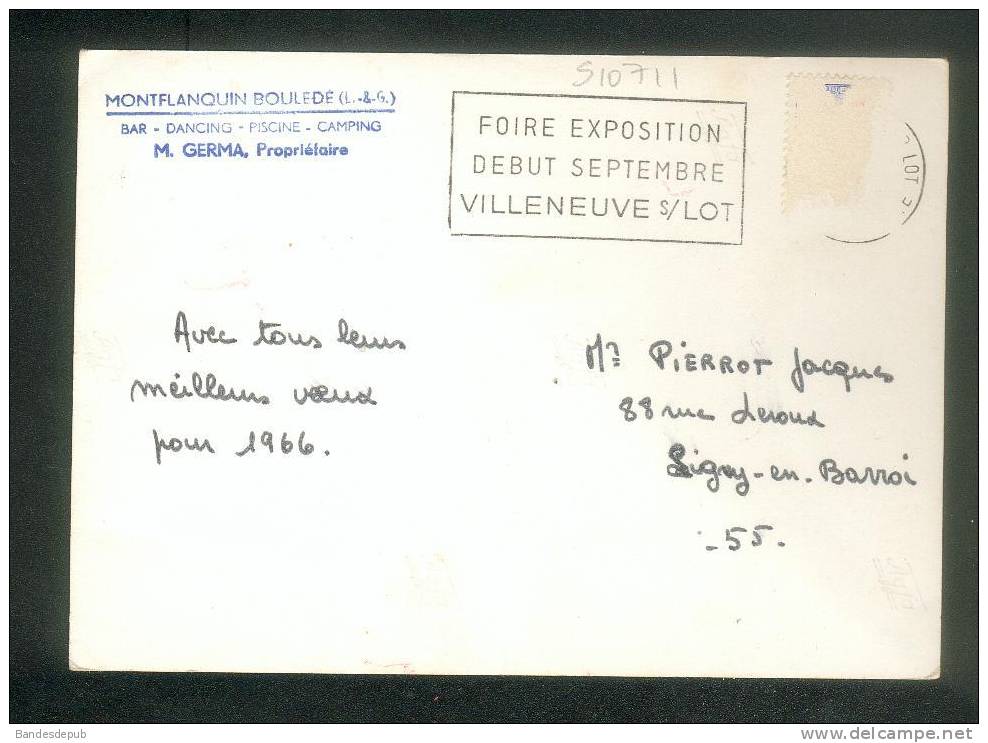 S10711
MONTFLANQUIN BOULEDE (L.-&-G.)
BAR - DANCING - PISCINE - CAMPING
M. GERMA, Propriétaire
FOIRE EXPOSITION
DEBUT SEPTEMBRE
VILLENEUVE S/LOT
LOT
Avec tous leurs
meilleurs vœux
pour 1966.
Mr PIERROT Jacques
88 rue Leroux
Ligny-en-Barroi
- 55.
Bandesdepub
delcampe.net